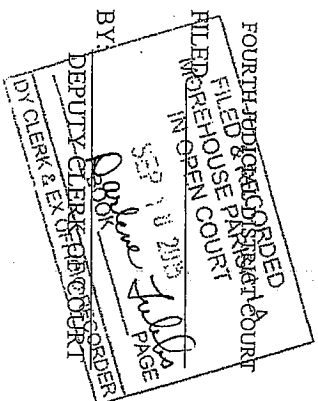 FOURTH JUDICIAL DISTRICT COURT
FILED & RECORDED
MOREHOUSE PARISH LA
IN OPEN COURT
FILED:
SEP 10
BOOK PAGE
BY:
Darlene
DEPUTY CLERK OF COURT
DY CLERK & EX OFFICIO RECORDER